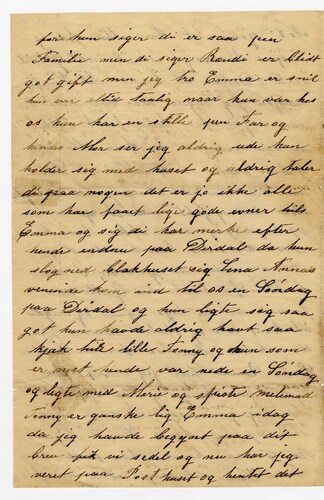 for hun siger di er saa pen
Familie men di siger Randi er Clidt
got gift men jeg tro Emma er snil
hun var altid taalig naar hun var hos
os hun har en stille pen Far og
hendes Mor ser jeg aldrig ude hun
holder sig med huset og aldrig taler
di paa nogen det er jo ikke alle
som har faaet lige gode evner tils
Emma og sig di har merke efter
hende endnu paa Dirdal da hun
slog ned Clakhuset sig Lina Annas
veninde kom ind til os en Søndag
paa Dirdal og hun ligte seg saa
got hun havde aldrig havt saa
kjæk tur lille Tonny og hun som
er nest unde var nede en Søndag
og legte med Merie og spiste melmad
Tonny er ganske lig Emma idag
da jeg havde begynt paa dit
brev fik vi sedel og nu har jeg
veret paa Post huset og hentet det